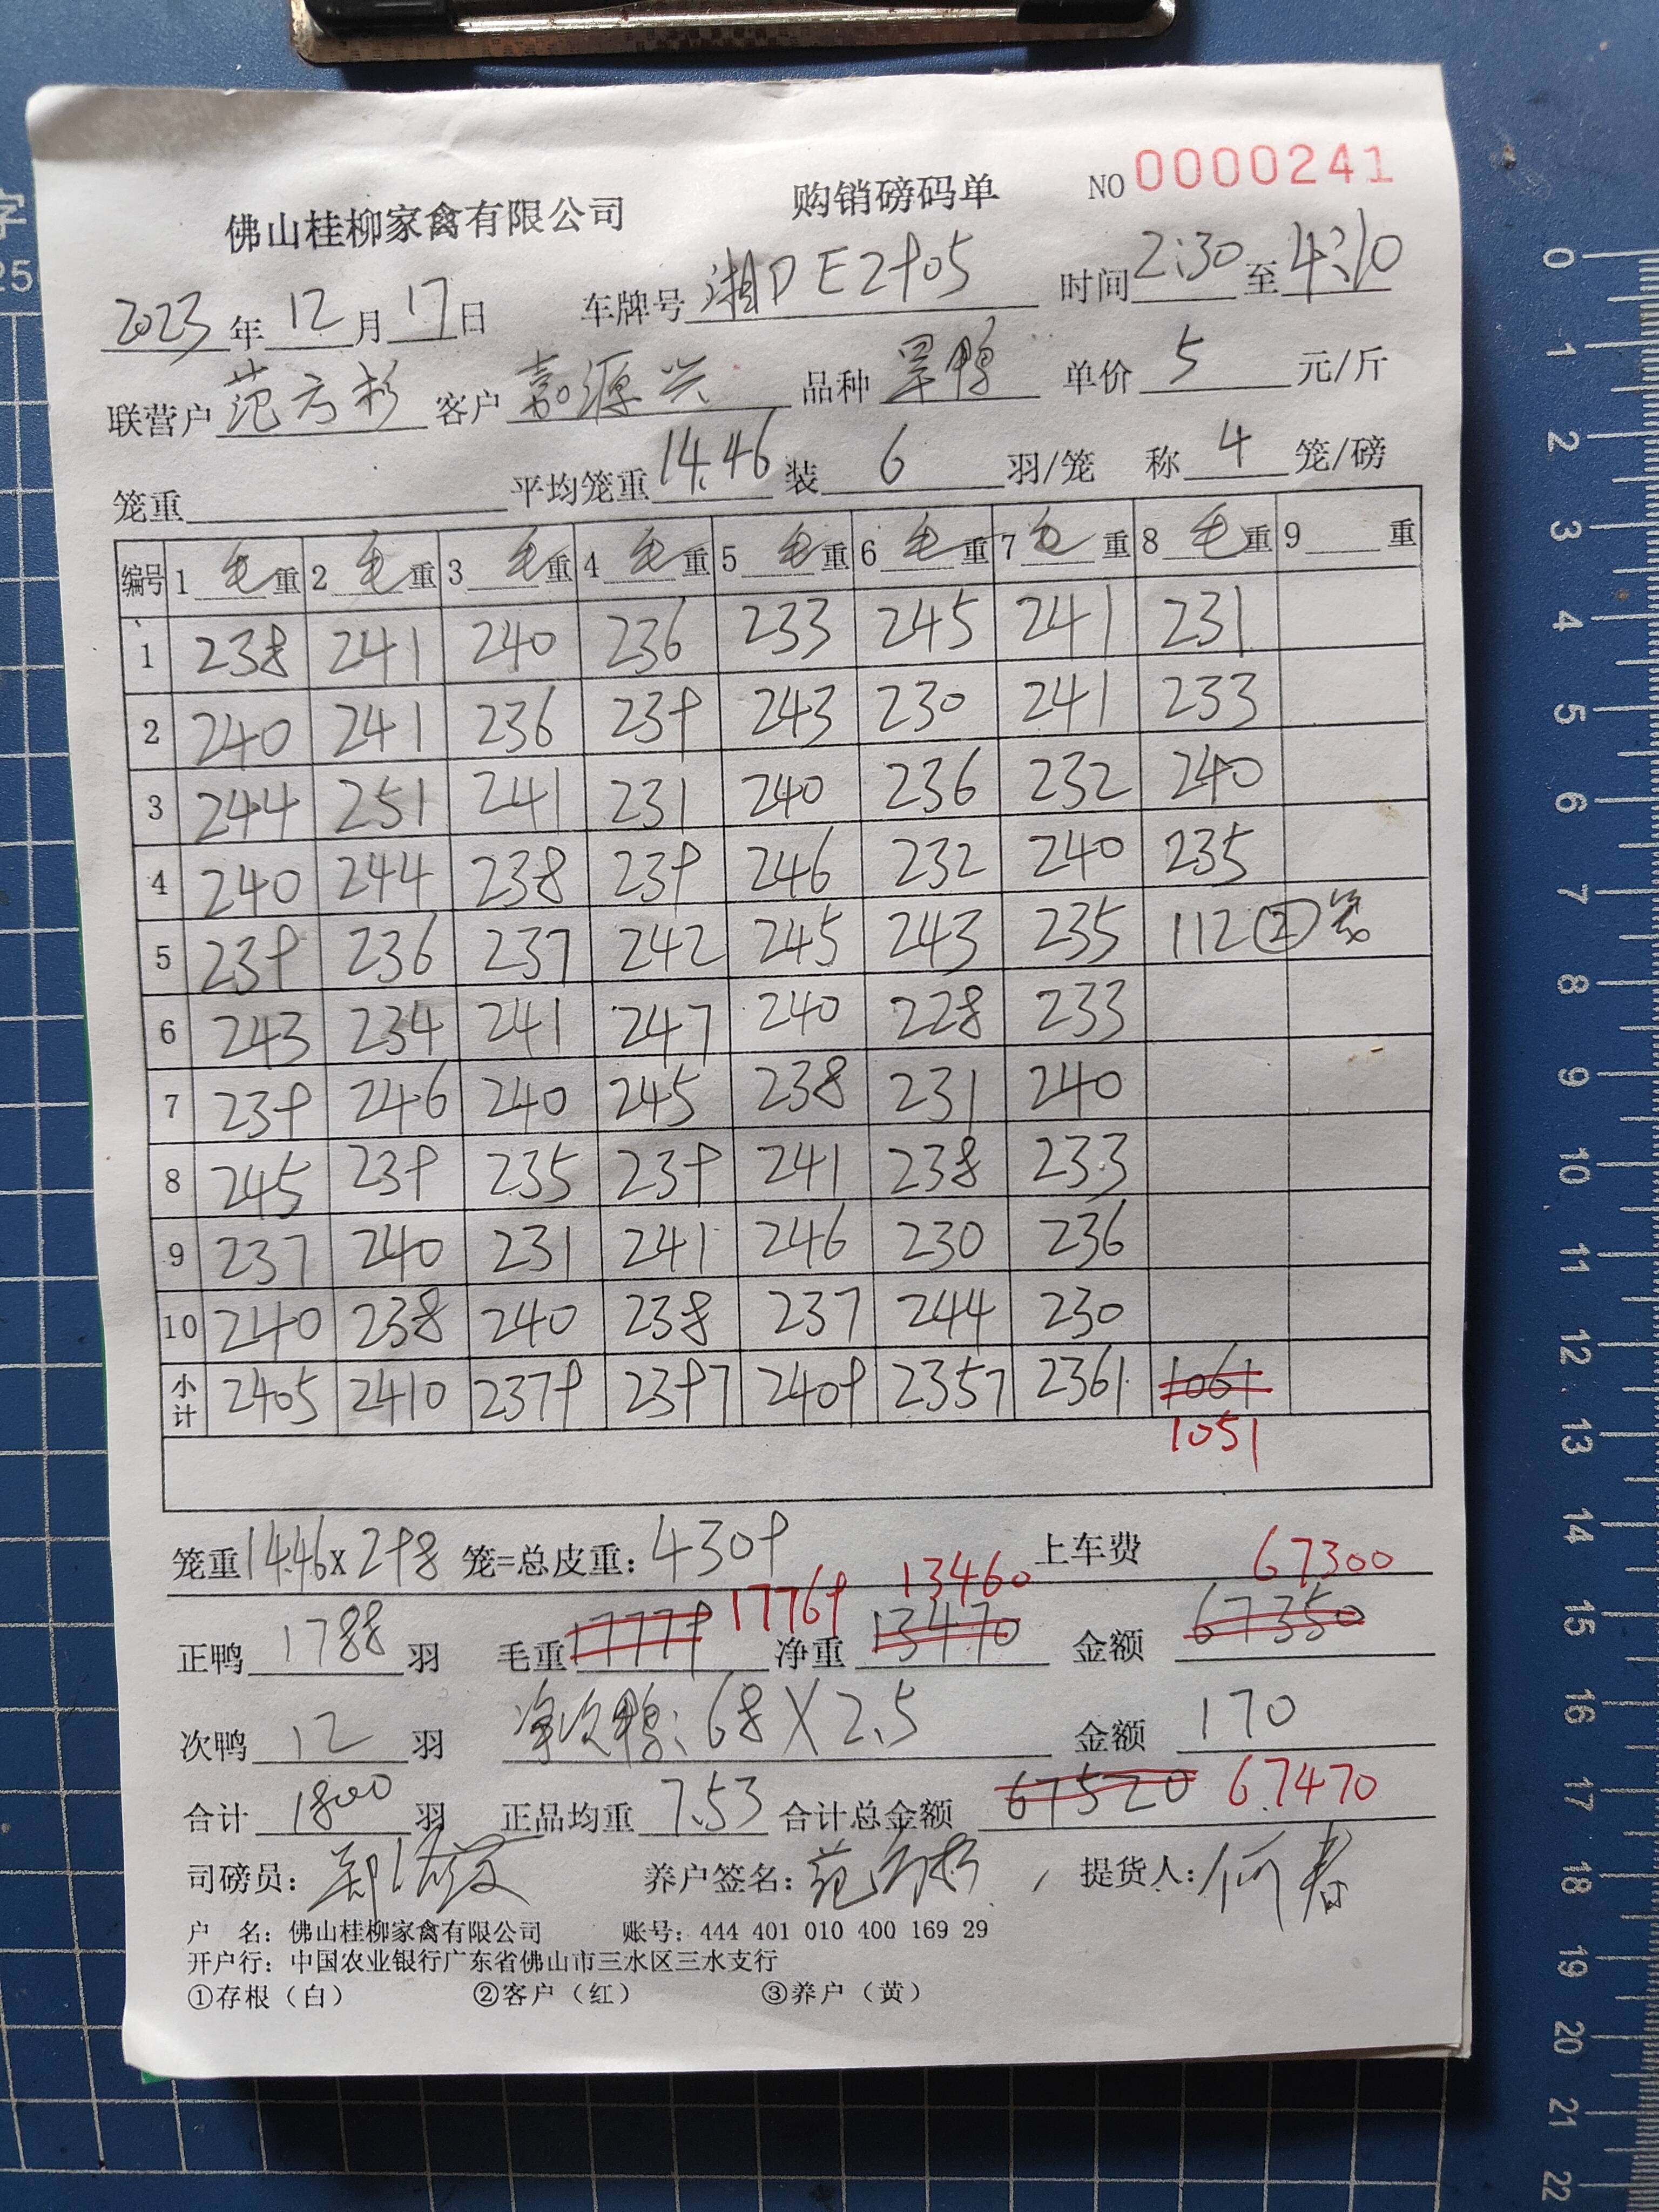 佛山桂柳家禽有限公司 购销磅码单 NO 0000241
2023年12月17日 车牌号 湘DE2905 时间 2:30 至 4:10
联营户 范方杉 客户 嘉源兴 品种 旱鸭 单价 5 元/斤
笼重 平均笼重 14.46 装 6 羽/笼 称 4 笼/磅
编号 1 毛重 2 毛重 3 毛重 4 毛重 5 毛重 6 毛重 7 毛重 8 毛重 9 重
1 238 241 240 236 233 245 241 231
2 240 241 236 239 243 230 241 233
3 244 251 241 231 240 236 232 240
4 240 244 238 239 246 232 240 235
5 239 236 237 242 245 243 235 112 ② 笼
6 243 234 241 247 240 228 233
7 239 246 240 245 238 231 240
8 245 239 235 239 241 238 233
9 237 240 231 241 246 230 236
10 240 238 240 238 237 244 230
小计 2405 2410 2379 2397 2409 2357 2361 1061
1051
笼重 14.46 x 298 笼=总皮重: 4309 上车费
17769 13460 67300
正鸭 1788 羽 毛重 17779 净重 13470 金额 67350
次鸭 12 羽 净次鸭: 68 X 2.5 金额 170
合计 1800 羽 正品均重 7.53 合计总金额 67520 67470
司磅员: 养户签名: 范方杉 提货人: 何春
户 名: 佛山桂柳家禽有限公司 账号: 444 401 010 400 169 29
开户行: 中国农业银行广东省佛山市三水区三水支行
①存根（白） ②客户（红） ③养户（黄）
字
25
0
1
2
3
4
5
6
7
8
9
10
11
12
13
14
15
16
17
18
19
20
21
22